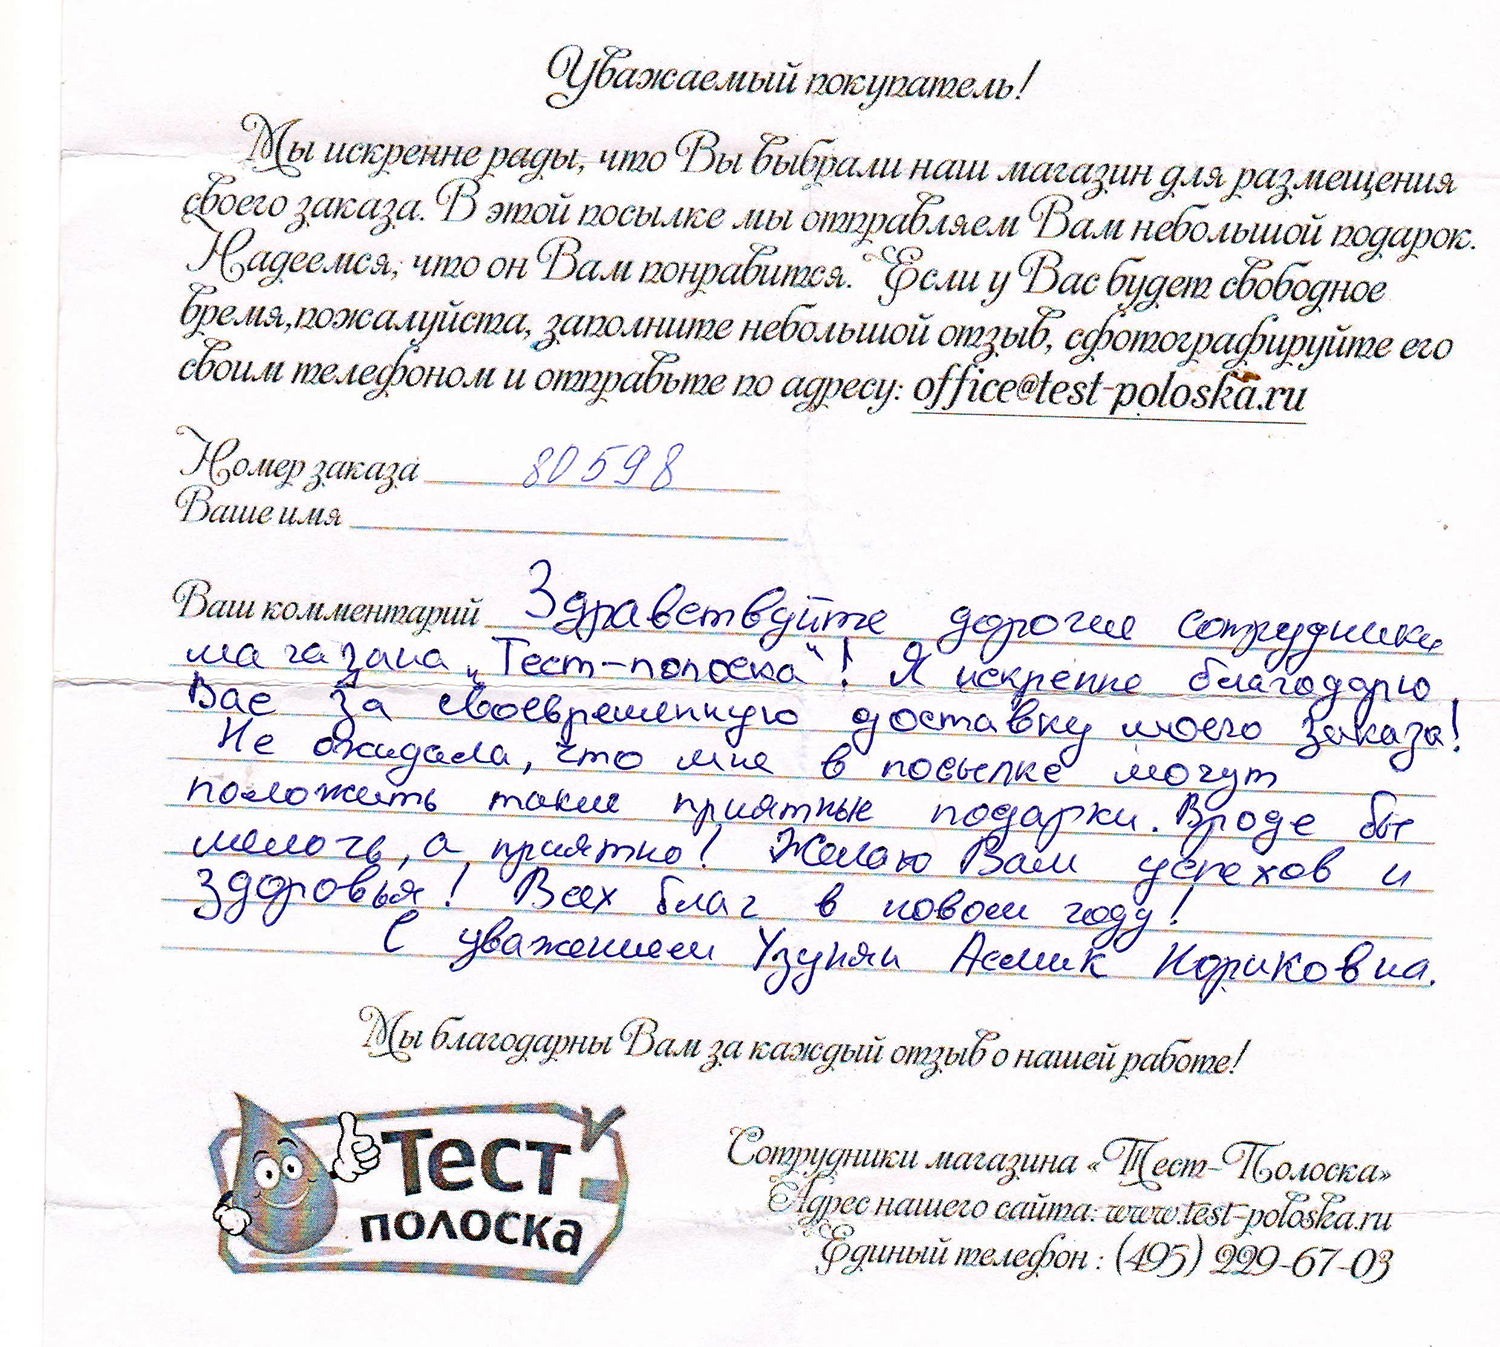 Уважаемый покупатель!
Мы искренне рады, что Вы выбрали наш магазин для размещения
своего заказа. В этой посылке мы отправляем Вам небольшой подарок.
Надеемся, что он Вам понравится. Если у Вас будет свободное
время,пожалуйста, заполните небольшой отзыв, сфотографируйте его
своим телефоном и отправьте по адресу: office@test-poloska.ru
Номер заказа 80598
Ваше имя
Ваш комментарий Здравствуйте дорогие сотрудники
магазина „Тест-полоска“! Я искренне благодарю
Вас за своевременную доставку моего заказа!
Не ожидала, что мне в посылке могут
положить такие приятные подарки. Вроде бы
мелочь, а приятно! Желаю Вам успехов и
здоровья! Всех благ в новом году!
С уважением Узунян Асмик Нориковна.
Мы благодарны Вам за каждый отзыв о нашей работе!
Тест
полоска
Сотрудники магазина «Тест-Полоска»
Адрес нашего сайта: www.test-poloska.ru
Единый телефон : (495) 229-67-03